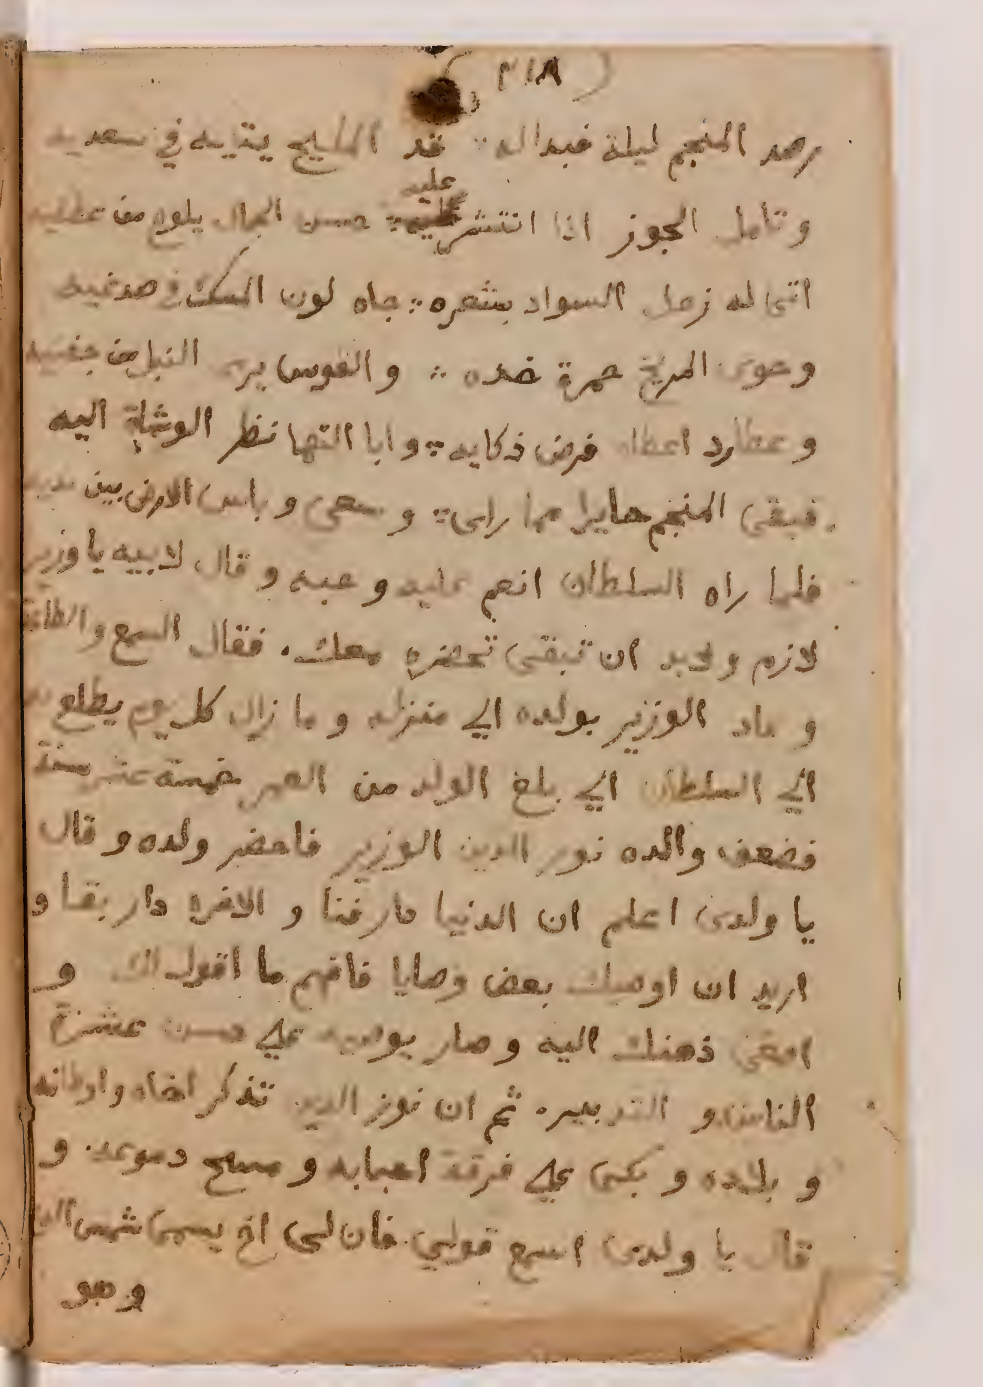 (٣١٨)
رصد المنجم ليلة فبدا له ⁘ قد المليح يتايه في سعديه
و تامل الجوز اذا انتشر عليه ⁘ حسن الجمال يلوح من عطفيه
اتى له زحل السواد بشعره ⁘ جاه لون المسك في صدغيه
وحوى المريخ حمرة خده ⁘ والقوس يرى النبل من جفنيه
و عطارد اعطاه فرض ذكايه ⁘ وابا التها نظر الوشاة اليه
فبقى المنجم حايرا مما راى ⁘ و سعى و باس الارض بين يديه
فلما راه السلطان انعم عليه و حبه و قال لابيه يا وزير
لازم ولابد ان تبقى تحضره معك. فقال السمع والطاعة
و عاد الوزير بولده الي منزله و ما زال كل يوم يطلع به
الي السلطان الي بلغ الولد من العمر خمسة عشر سنة
فضعف والده نور الدين الوزير فاحضر ولده و قال
يا ولدى اعلم ان الدنيا دار فنا و الاخره دار بقا و
اريد ان اوصيك بعض وصايا فافهم ما اقول لك و
اصغى ذهنك اليه و صار يوصيه علي حسن عشرة
الناس و التدبير. ثم ان نور الدين تذكر اخاه واوطانه
و بلاده و بكى علي فرقة احبابه و مسح دموعه و
قال يا ولدى اسمع قولي فان لى اخ يسمى شمس الدين
وهو